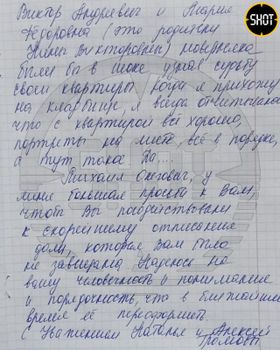 SHOT
Виктор Андреевич и Мария
Фёдоровна (это родители
Нины Викторовны) наверняка
были бы в шоке узнав судьбу
своей квартиры. Когда я прихожу
на кладбище, я всегда
что с квартирой всё хорошо,
портреты на месте всё в порядке,
а тут такое Да...
Михаил Олегович, у
меня большая просьба к Вам,
чтоб Вы поспособствовали
к скорейшему отписанию
дачи, которая Вам была
не завещана Надеюсь на
вашу человечность и понимание
и порядочность, что в ближайшее
время её переоформите
С Уважением Наталья и Алексей
Громовы